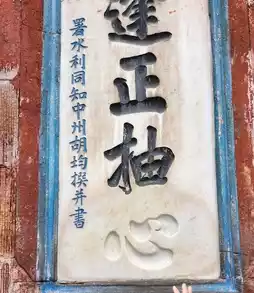 蓬正抽心
署水利同知中州胡均撰并書